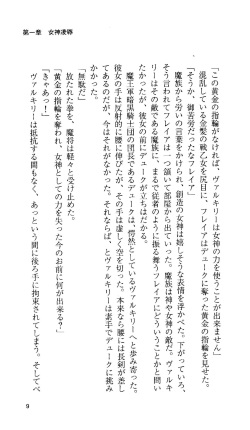 第一章　女神凌辱
「この黄金の指輪がなければ、ヴァルキリーは女神の力を使うことは出来ません」
混乱している金髪の戦乙女を尻目に、フレイアはデュークに奪った黄金の指輪を見せた。
「そうか、御苦労だったなフレイア」
魔族から労いの言葉をかけられ、創造の女神は嬉しそうな表情を浮かべた。「下がっていろ」、
そう言われてフレイアは一つ頷いて、部屋から出ていった。魔族は神や女神の敵だ。ヴァルキ
リーはその敵である魔族に、まるで従者のように振る舞うフレイアにどういうことかと問い
たかったが、彼女の前にデュークが立ちはだかる。
魔王軍暗黒騎士団の団長であるデュークは、愕然としているヴァルキリーへと歩み寄った。
彼女の手は反射的に腰に伸びたが、その手は虚しく空を切った。本来なら腰には長剣が差し
てあるのだが、今はそれがなかった。それならば、とヴァルキリーは素手でデュークに挑み
かかった。
「無駄だ」
放たれた拳を、魔将は軽々と受け止めた。
「黄金の指輪を奪われ、女神としての力を失った今のお前に何が出来る？」
「きゃあっ！」
ヴァルキリーは抵抗する間もなく、あっという間に後ろ手に拘束されてしまう。そしてベ
9